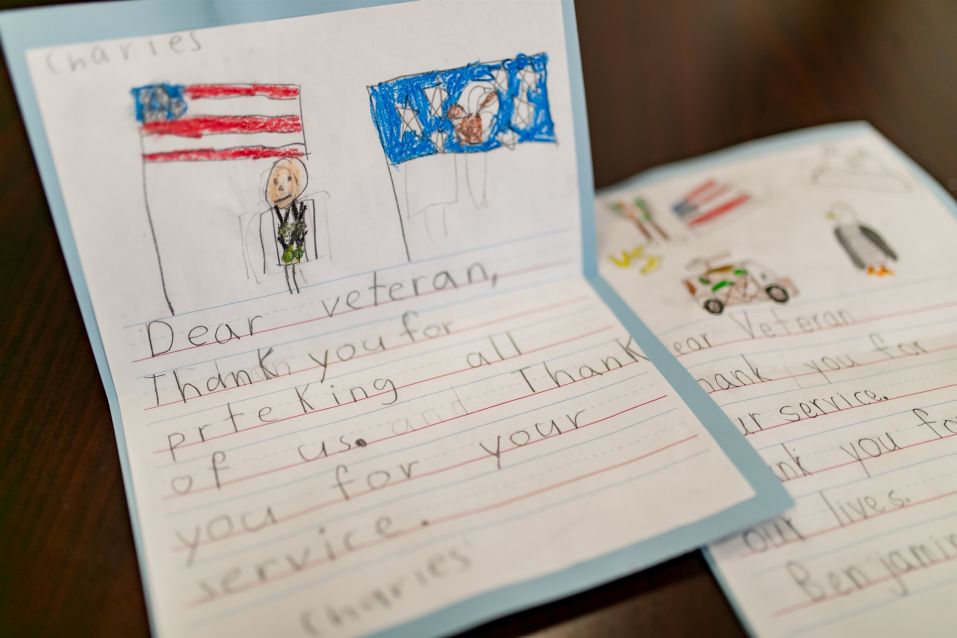 Charles
Dear veteran,
Thank you for
prteKing all
of us. and Thank
you for your
service.
Charles
ear Veteran
hank you for
ur service.
nk you for
our lives.
Benjamin